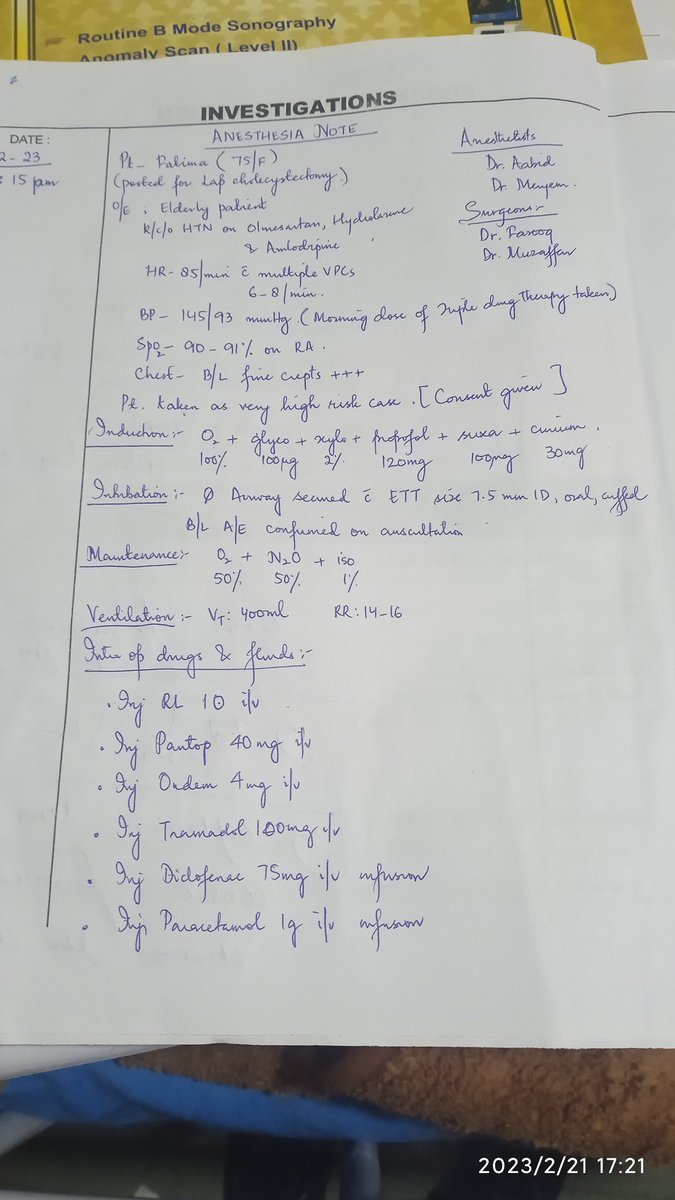 Routine B Mode Sonography
Anomaly Scan ( Level II)
INVESTIGATIONS
DATE :
2 - 23
: 15 pm
ANESTHESIA NOTE
Pt - Fatima ( 75/F )
(posted for Lap cholecystectomy.)
O/E , Elderly patient
k/c/o HTN on Olmesartan,
& Amlodipine
HR- 85/min c̄ multiple VPCs
6-8/min.
BP - 145/93 mmHg. (Morning dose of triple drug therapy taken)
SpO2 - 90 - 91% on RA.
Chest - B/L fine crepts +++
Pt. taken as very high risk case. [Consent given]
Anesthetists
Dr. Aabid
Dr. Meryem.
Surgeons:-
Dr. Farooq
Dr. Muzaffar
Induction:- O2 + glyco + xylo + propofol + suxa +
100% 100µg 2% 120mg 100mg 30mg
Ø Airway secured c̄ ETT size 7.5 mm ID, oral, cuffed
B/L A/E confirmed on auscultation
Maintenance:- O2 + N2O + iso
50% 50% 1%
Ventilation:- VT: 400ml RR: 14-16
Intra op drugs & fluids:-
. Inj RL 10 i/v
. Inj Pantop 40mg i/v
. Inj Ondem 4mg i/v
. Inj Tramadol 100mg i/v
. Inj Diclofenac 75mg i/v infusion
. Inj Paracetamol 1g i/v infusion
2023/2/21 17:21